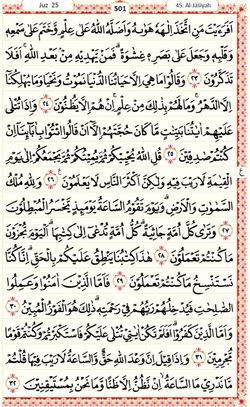 Juz 25 501 45. Al-Jāṡiyah
اَفَرَءَيْتَ مَنِ اتَّخَذَ اِلٰهَهٗ هَوٰىهُ وَاَضَلَّهُ اللّٰهُ عَلٰى عِلْمٍ وَّخَتَمَ عَلٰى سَمْعِهٖ
وَقَلْبِهٖ وَجَعَلَ عَلٰى بَصَرِهٖ غِشٰوَةًۗ فَمَنْ يَّهْدِيْهِ مِنْۢ بَعْدِ اللّٰهِۗ اَفَلَا
تَذَكَّرُوْنَ ٢٣ وَقَالُوْا مَا هِيَ اِلَّا حَيَاتُنَا الدُّنْيَا نَمُوْتُ وَنَحْيَا وَمَا يُهْلِكُنَآ
اِلَّا الدَّهْرُۚ وَمَا لَهُمْ بِذٰلِكَ مِنْ عِلْمٍۚ اِنْ هُمْ اِلَّا يَظُنُّوْنَ ٢٤ وَاِذَا تُتْلٰى
عَلَيْهِمْ اٰيٰتُنَا بَيِّنٰتٍ مَّا كَانَ حُجَّتَهُمْ اِلَّآ اَنْ قَالُوا ائْتُوْا بِاٰبَاۤىِٕنَآ اِنْ
كُنْتُمْ صٰدِقِيْنَ ٢٥ قُلِ اللّٰهُ يُحْيِيْكُمْ ثُمَّ يُمِيْتُكُمْ ثُمَّ يَجْمَعُكُمْ اِلٰى يَوْمِ
الْقِيٰمَةِ لَا رَيْبَ فِيْهِ وَلٰكِنَّ اَكْثَرَ النَّاسِ لَا يَعْلَمُوْنَ ٢٦ وَلِلّٰهِ مُلْكُ
السَّمٰوٰتِ وَالْاَرْضِۗ وَيَوْمَ تَقُوْمُ السَّاعَةُ يَوْمَىِٕذٍ يَّخْسَرُ الْمُبْطِلُوْنَ
٢٧ وَتَرٰى كُلَّ اُمَّةٍ جَاثِيَةًۗ كُلُّ اُمَّةٍ تُدْعٰٓى اِلٰى كِتٰبِهَاۗ اَلْيَوْمَ تُجْزَوْنَ
مَا كُنْتُمْ تَعْمَلُوْنَ ٢٨ هٰذَا كِتٰبُنَا يَنْطِقُ عَلَيْكُمْ بِالْحَقِّۗ اِنَّا كُنَّا
نَسْتَنْسِخُ مَا كُنْتُمْ تَعْمَلُوْنَ ٢٩ فَاَمَّا الَّذِيْنَ اٰمَنُوْا وَعَمِلُوا
الصّٰلِحٰتِ فَيُدْخِلُهُمْ رَبُّهُمْ فِيْ رَحْمَتِهٖۗ ذٰلِكَ هُوَ الْفَوْزُ الْمُبِيْنُ ٣٠
وَاَمَّا الَّذِيْنَ كَفَرُوْاۗ اَفَلَمْ تَكُنْ اٰيٰتِيْ تُتْلٰى عَلَيْكُمْ فَاسْتَكْبَرْتُمْ وَكُنْتُمْ قَوْمًا
مُّجْرِمِيْنَ ٣١ وَاِذَا قِيْلَ اِنَّ وَعْدَ اللّٰهِ حَقٌّ وَّالسَّاعَةُ لَا رَيْبَ فِيْهَا قُلْتُمْ
مَّا نَدْرِيْ مَا السَّاعَةُۙ اِنْ نَّظُنُّ اِلَّا ظَنًّا وَّمَا نَحْنُ بِمُسْتَيْقِنِيْنَ ٣٢